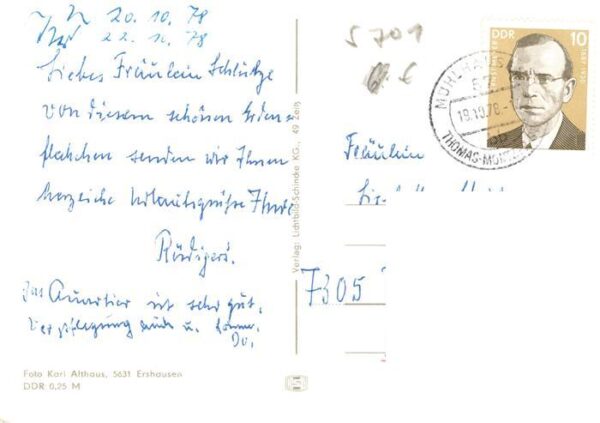 20.10.78
22.10.78
Liebes Fräulein Schlütze
von diesem schönen Erden-
fleckchen senden wir Ihnen
herzliche Urlaubsgrüße Ihre
Rüdigers.
Das Quartier ist sehr gut,
Verpflegung auch u.
Foto Karl Althaus, 5631 Ershausen
DDR 0,25 M
Verlag: Lichtbild-Schincke KG., 49 Zeitz
5701
€
DDR 10
MÜHLHAUSEN
19.10.78
THOMAS-MÜNTZER
Fräulein
7305